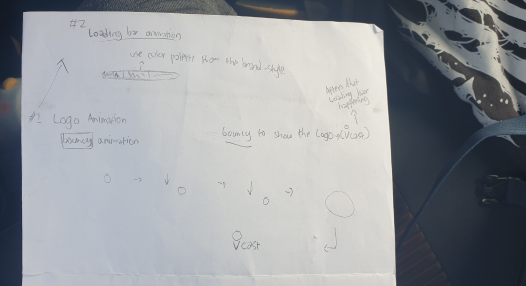 #2
Loading bar animation
use color palette from the brand style
After that
loading bar
happening
#1 Logo Animation
bouncy animation
bouncy to show the Logo
(Vcast)
Vcast